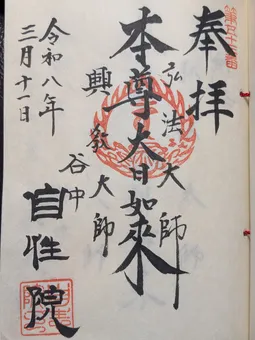 第五十三番
奉拝
弘法大師
本尊大日如來
興教大師
谷中
自性院
令和八年
三月十一日